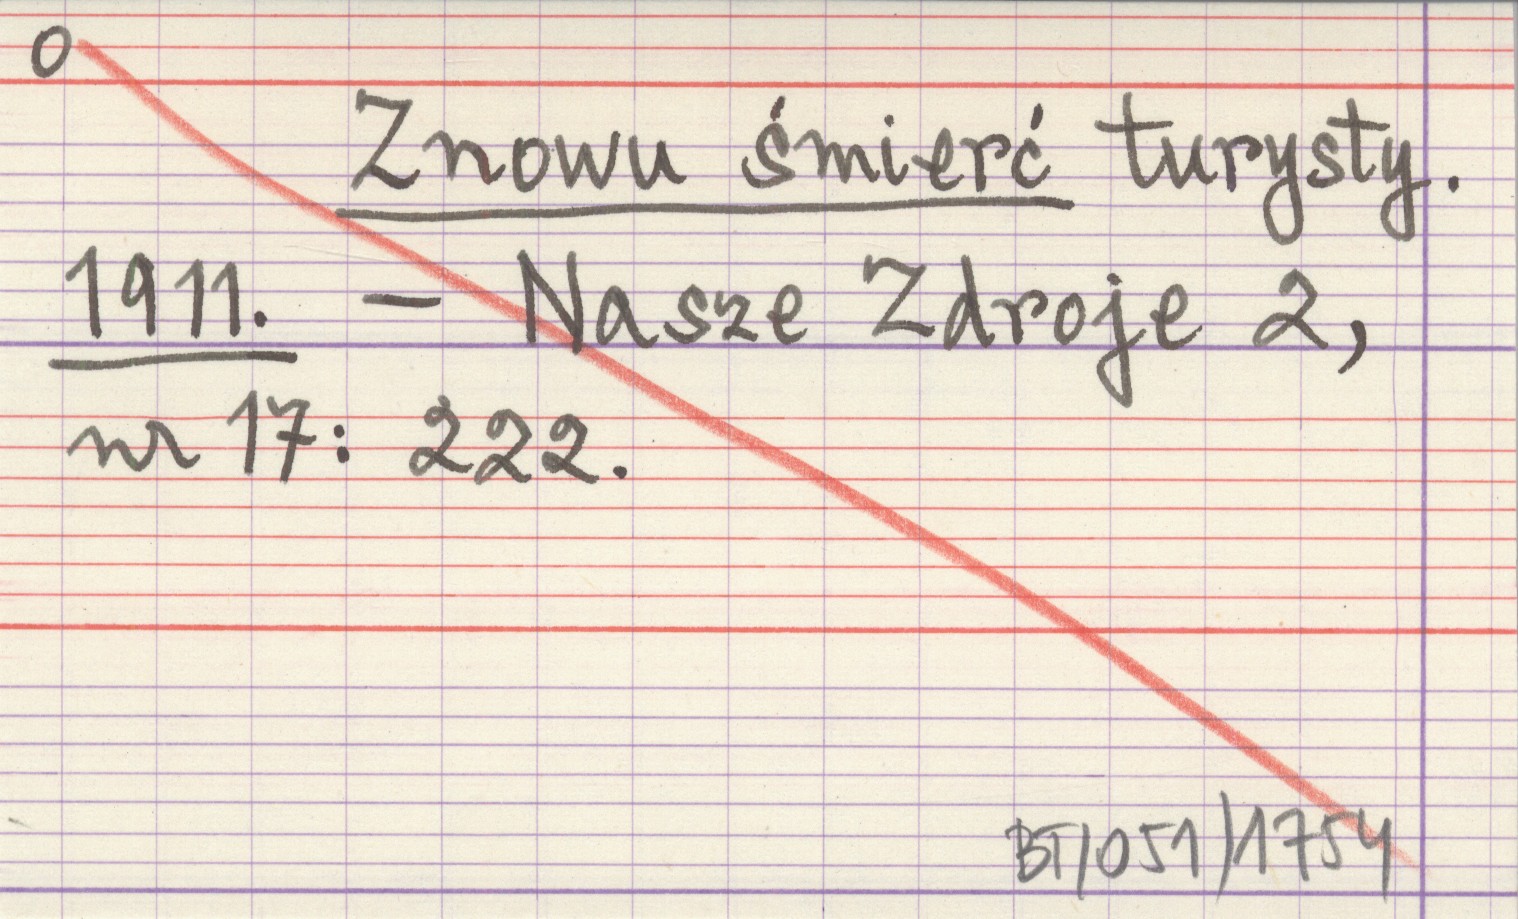 O
Znowu śmierć turysty.
1911. — Nasze Zdroje 2,
nr 17: 222.
BT/051/1754